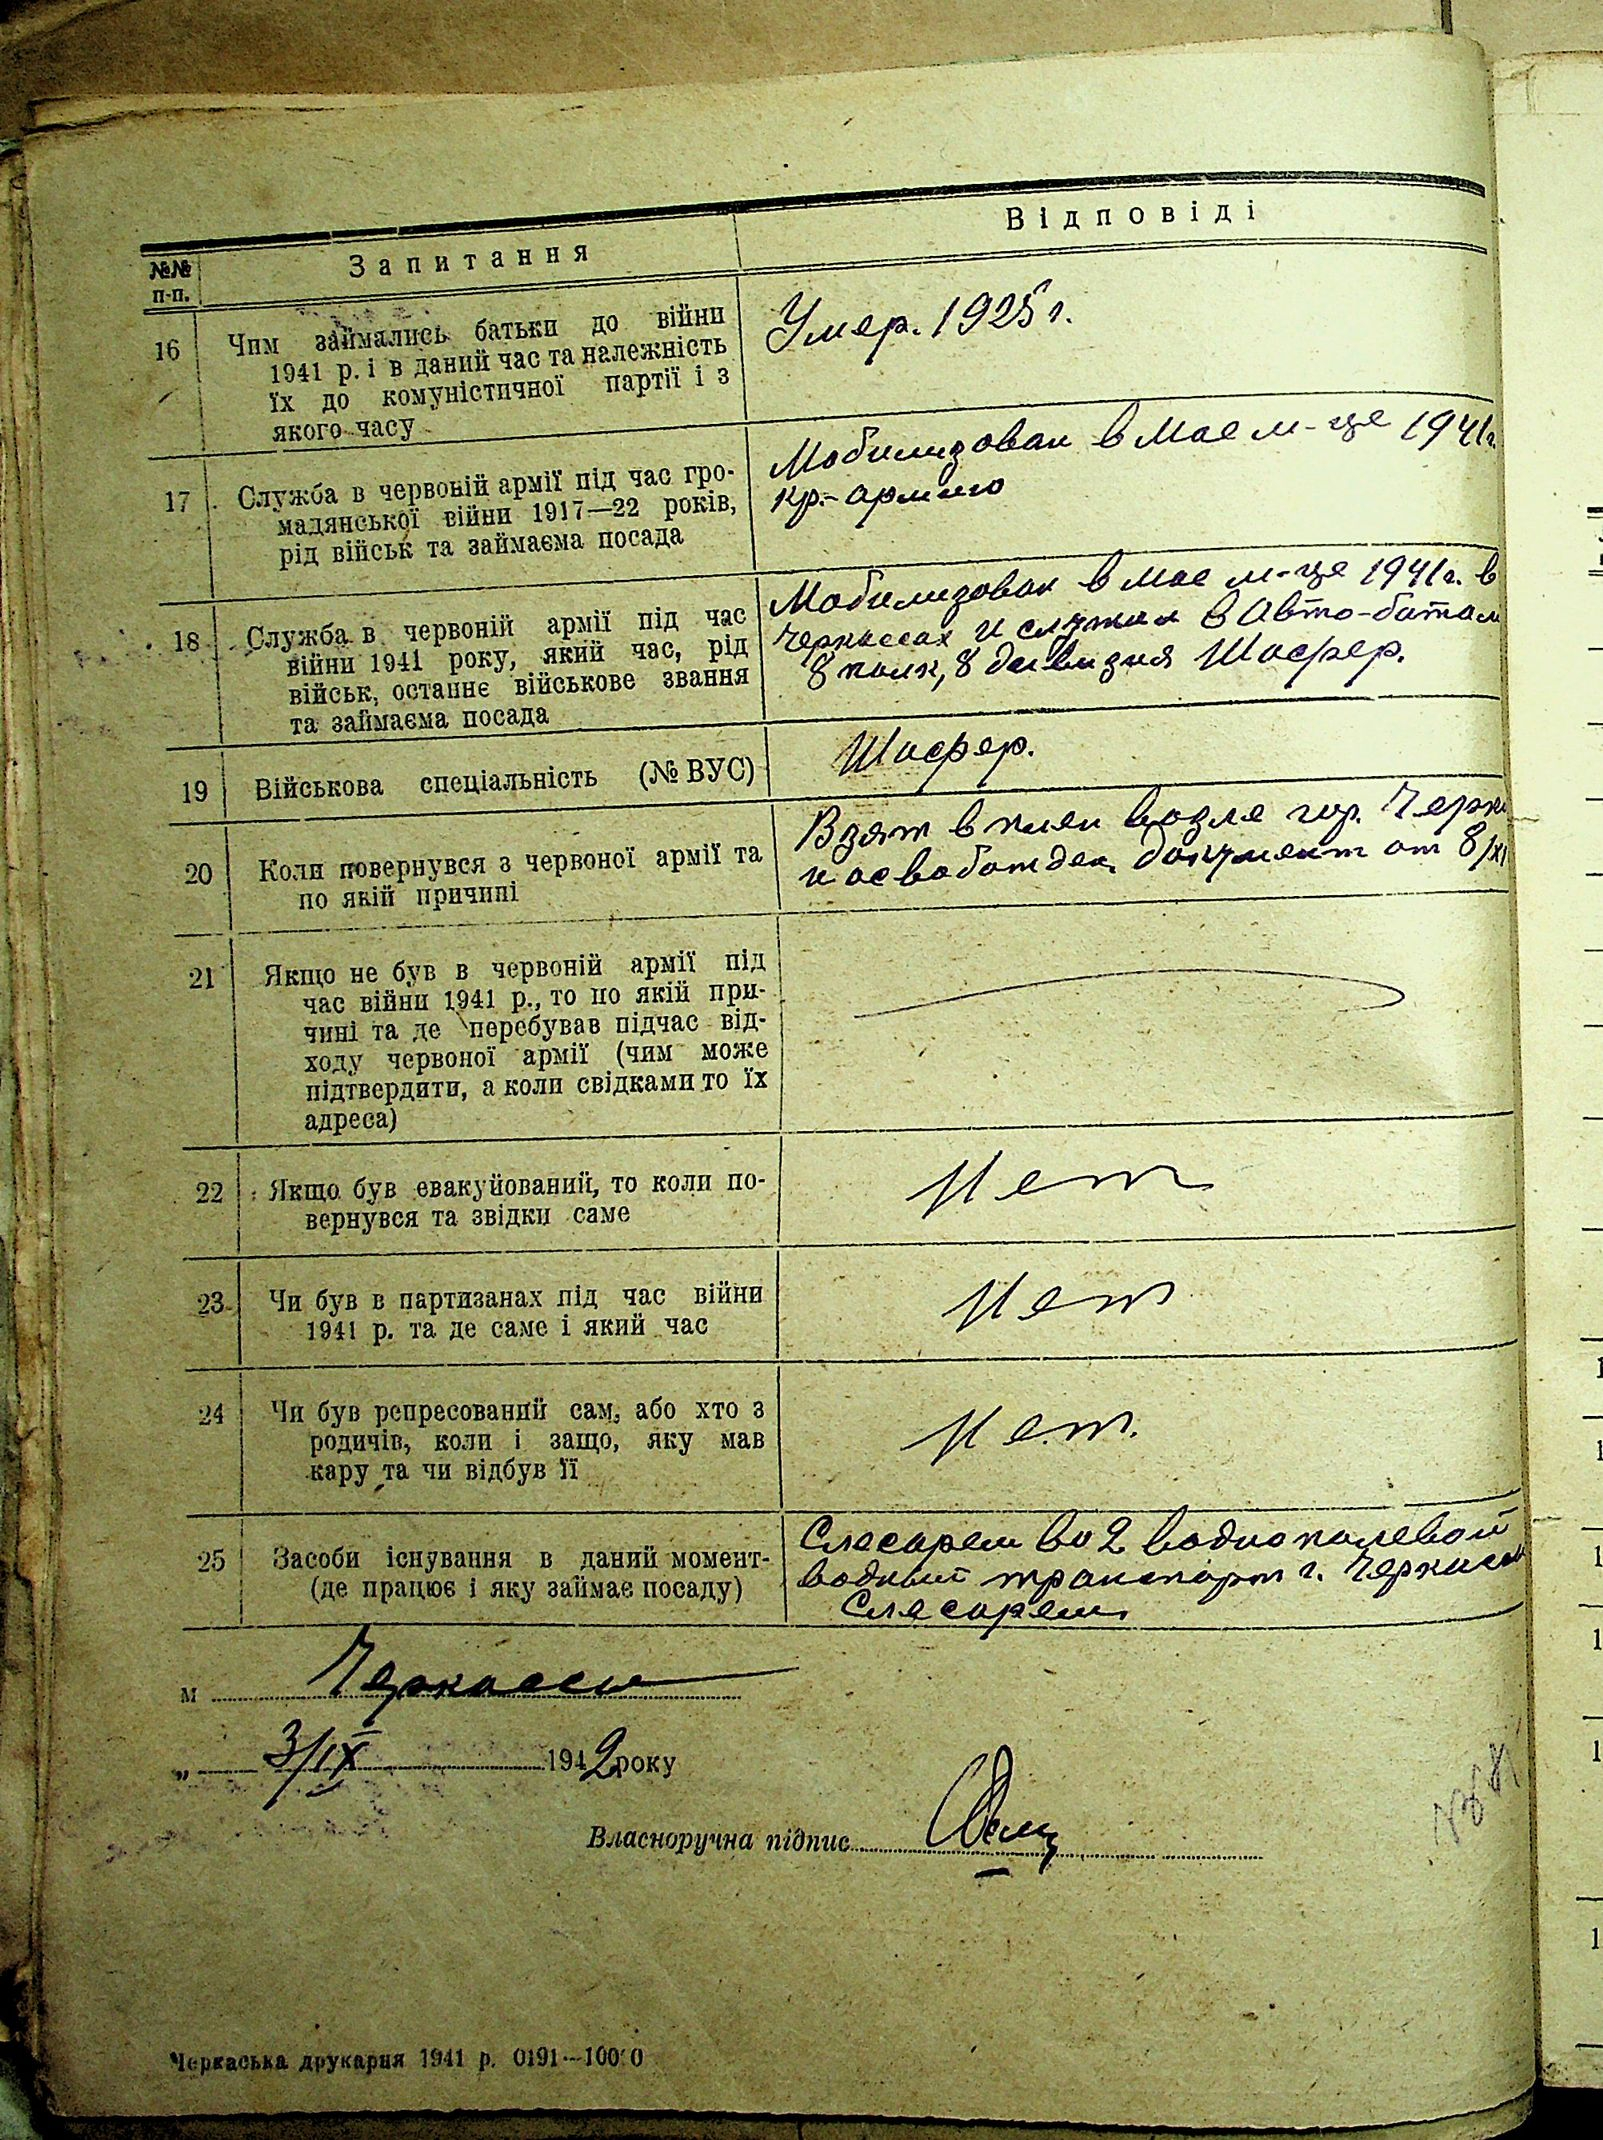 №№ п-п.
Запитання
Відповіді
16
Чим займались батьки до війни
1941 р. і в даний час та належність
їх до комуністичної партії і з
якого часу
Умер. 1925 г.
17
Служба в червоній армії під час гро-
мадянської війни 1917—22 років,
рід військ та займаєма посада
Мобилизован в Мае м-це 1941 г.
кр.-армию
18
Служба в червоній армії під час
війни 1941 року, який час, рід
військ, останнє військове звання
та займаєма посада
Мобилизован в мае м-це 1941 г. в
Черкассах и служил в Авто-батал
8 полк, 8 дивизия Шофер.
19
Військова спеціальність (№ ВУС)
Шофер.
20
Коли повернувся з червоної армії та
по якій причині
Взят в плен возле гор. Черк
и освобожден, документ от 8/XI
21
Якщо не був в червоній армії під
час війни 1941 р., то по якій при-
чині та де перебував підчас від-
ходу червоної армії (чим може
підтвердити, а коли свідками то їх
адреса)
22
Якщо був евакуйований, то коли по-
вернувся та звідки саме
Нет
23
Чи був в партизанах під час війни
1941 р. та де саме і який час
Нет
24
Чи був репресований сам, або хто з
родичів, коли і защо, яку мав
кару та чи відбув її
Нет.
25
Засоби існування в даний момент-
(де працює і яку займає посаду)
Слесарем во 2 воднополевой
водный транспорт г. Черкассы
Слесарем
м Черкассы
„ 3/IX 1942 року
Власноручна підпис
Черкаська друкарня 1941 р. 0191—10000